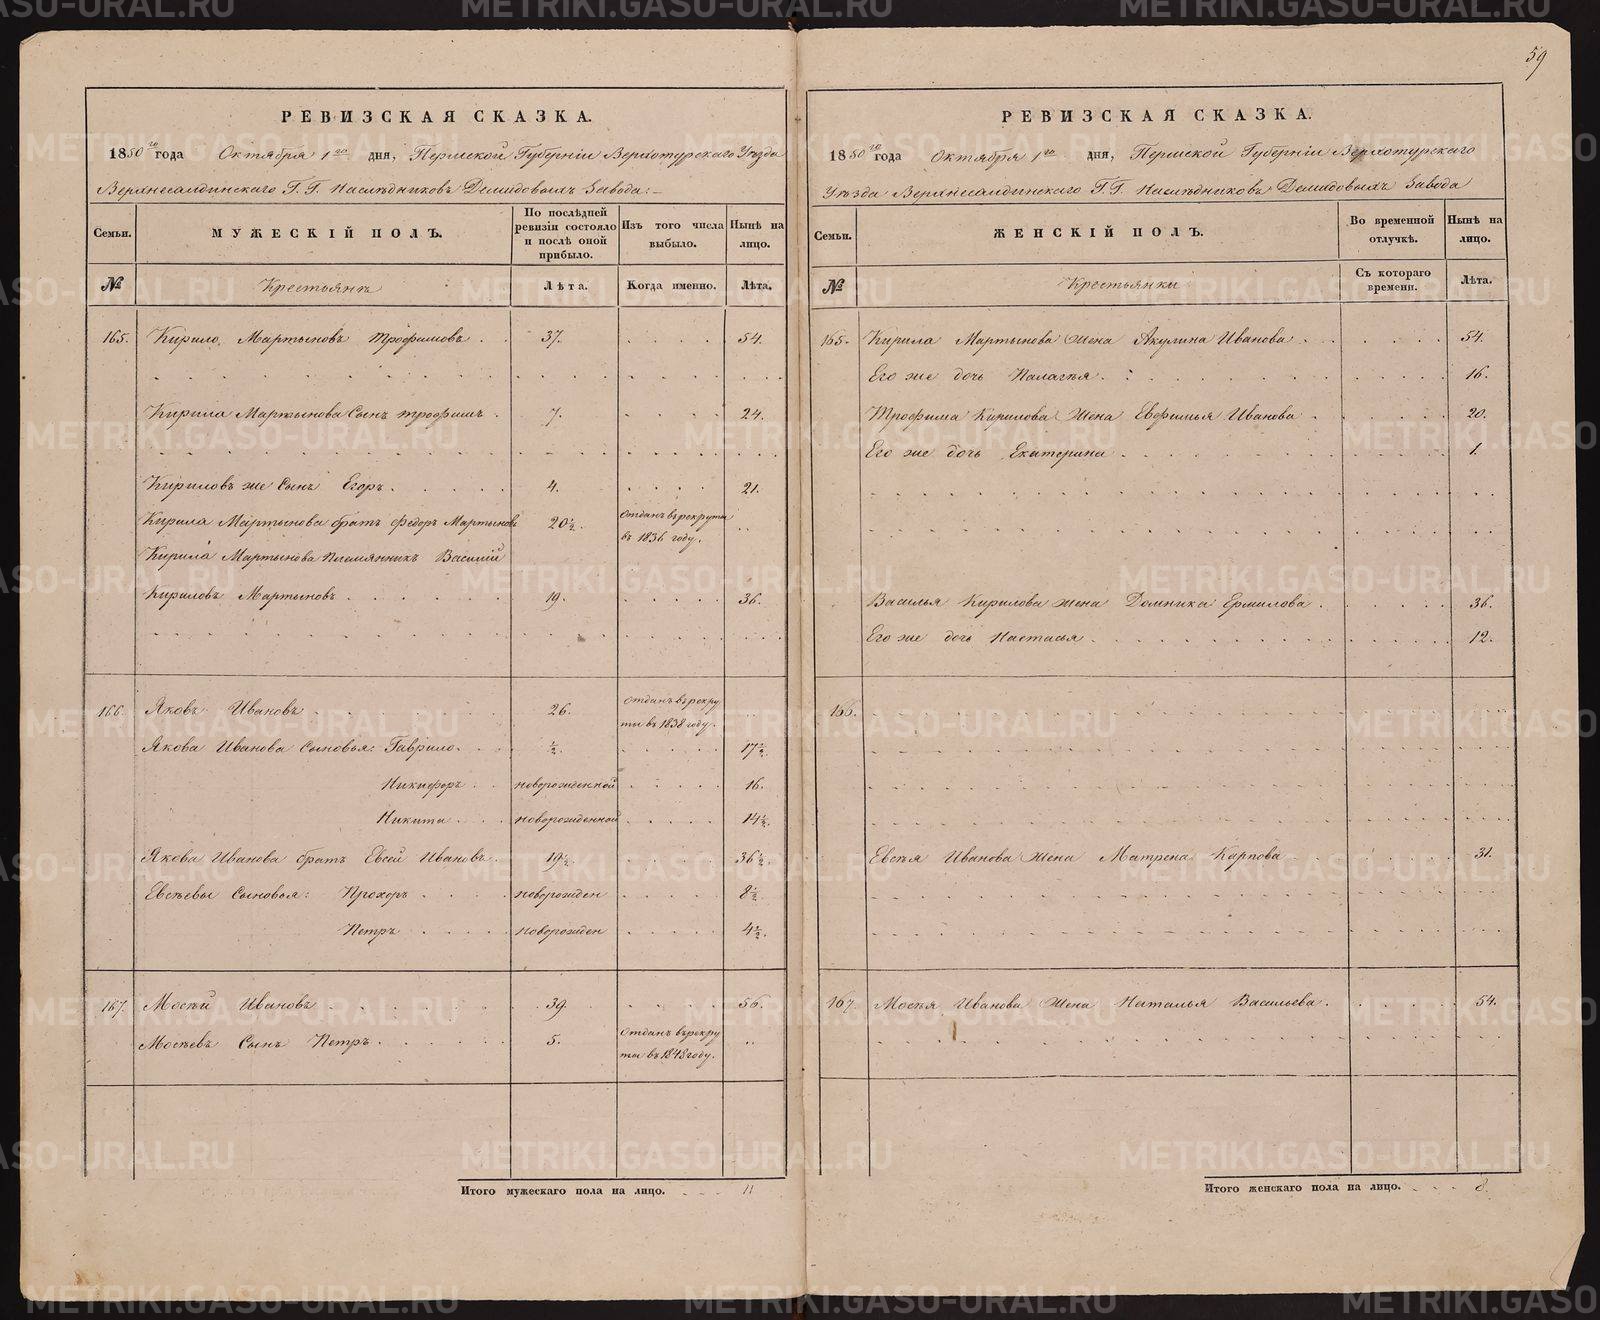 59
РЕВИЗСКАЯ СКАЗКА.
1850го года Октября 1го дня, Пермской Губерніи Верхотурскаго Уѣзда
Верхнесалдинскаго Г.Г. Наслѣдниковъ Демидовыхъ Завода:
Семьи.
МУЖЕСКІЙ ПОЛЪ.
По послѣдней ревизіи состояло и послѣ оной прибыло.
Изъ того числа выбыло.
Нынѣ на лицо.
№
Крестьянъ
Лѣта.
Когда именно.
Лѣта.
165. Кирило Мартыновъ Трофимовъ 37. 54.
Кирила Мартынова Сынъ Трофимъ 7. 24.
Кириловъ же Сынъ Егоръ 4. 21.
Кирила Мартынова братъ Федоръ Мартыновъ 20½. Отданъ въ рекруты въ 1836 году.
Кирила Мартынова Племянникъ Василій
Кириловъ Мартыновъ 19. 36.
166. Яковъ Ивановъ 26. Отданъ въ рекруты въ 1838 году.
Якова Иванова Сыновья: Гаврило ½. 17½.
Никифоръ новорожденной 16.
Никита новорожденной 14½.
Якова Иванова братъ Евсей Ивановъ 19½ 36½.
Евсѣевы Сыновья: Прохоръ новорожден 8½.
Петръ новорожден 4½.
167. Мосѣй Ивановъ 39. 56.
Мосѣевъ Сынъ Петръ 5. Отданъ въ рекруты въ 1848 году.
Итого мужескаго пола на лицо. 11
РЕВИЗСКАЯ СКАЗКА.
1850го года Октября 1го дня, Пермской Губерніи Верхотурскаго
Уѣзда Верхнесалдинскаго Г.Г. Наслѣдниковъ Демидовыхъ Завода
Семьи.
ЖЕНСКІЙ ПОЛЪ.
Во временной отлучкѣ.
Нынѣ на лицо.
№
Крестьянки
Съ котораго времени.
Лѣта.
165. Кирила Мартынова Жена Акулина Иванова 54.
Его же дочь Палагѣя 16.
Трофима Кирилова Жена Евфимья Иванова 20.
Его же дочь Екатерина 1.
Василья Кирилова жена Домника Ермилова 36.
Его же дочь Настасья 12.
166.
Евсѣя Иванова Жена Матрена Карпова 31.
167. Мосѣя Иванова Жена Наталья Васильева 54.
Итого женскаго пола на лицо. 8.
METRIKI.GASO-URAL.RU